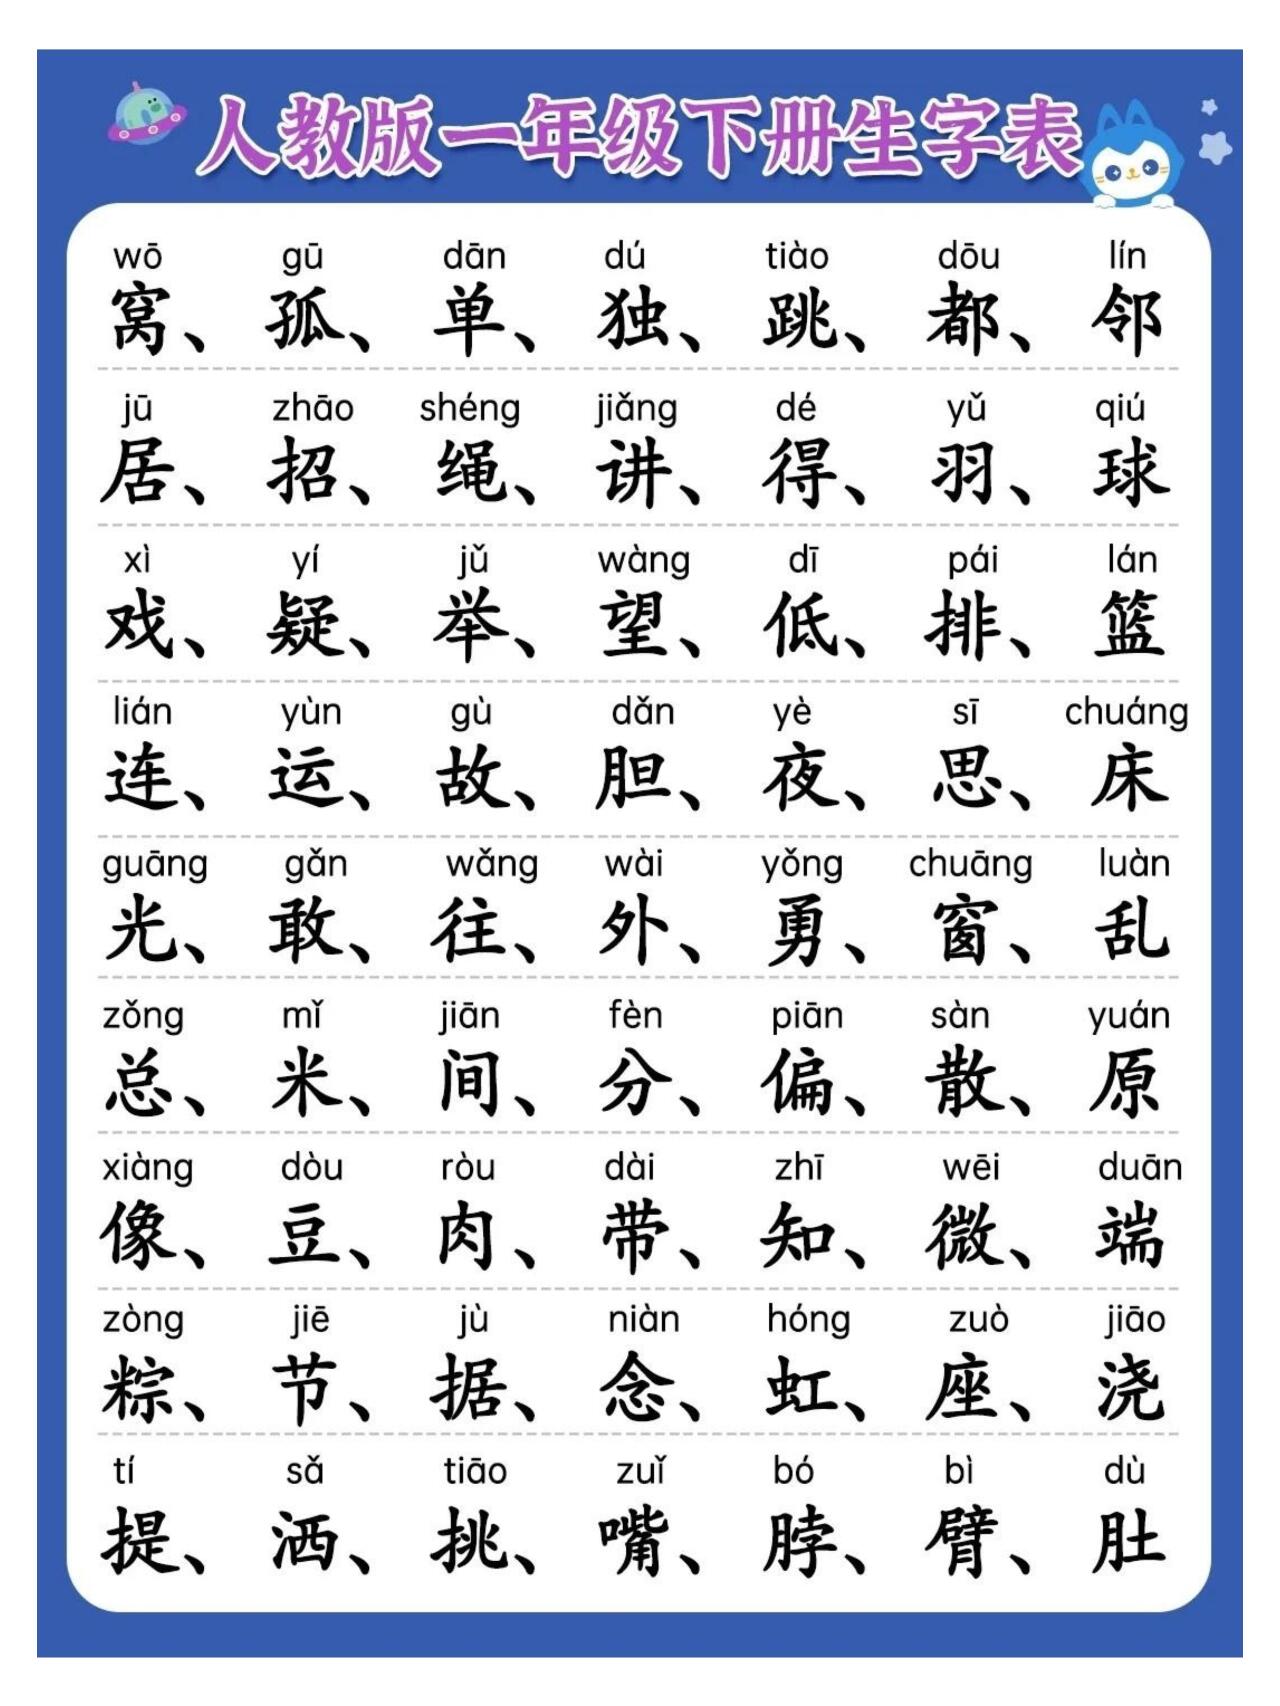 人教版一年级下册生字表
wō gū dān dú tiào dōu lín
窝、孤、单、独、跳、都、邻
jū zhāo shéng jiǎng dé yǔ qiú
居、招、绳、讲、得、羽、球
xì yí jǔ wàng dī pái lán
戏、疑、举、望、低、排、篮
lián yùn gù dǎn yè sī chuáng
连、运、故、胆、夜、思、床
guāng gǎn wǎng wài yǒng chuāng luàn
光、敢、往、外、勇、窗、乱
zǒng mǐ jiān fèn piān sàn yuán
总、米、间、分、偏、散、原
xiàng dòu ròu dài zhī wēi duān
像、豆、肉、带、知、微、端
zòng jiē jù niàn hóng zuò jiāo
粽、节、据、念、虹、座、浇
tí sǎ tiāo zuǐ bó bì dù
提、洒、挑、嘴、脖、臂、肚